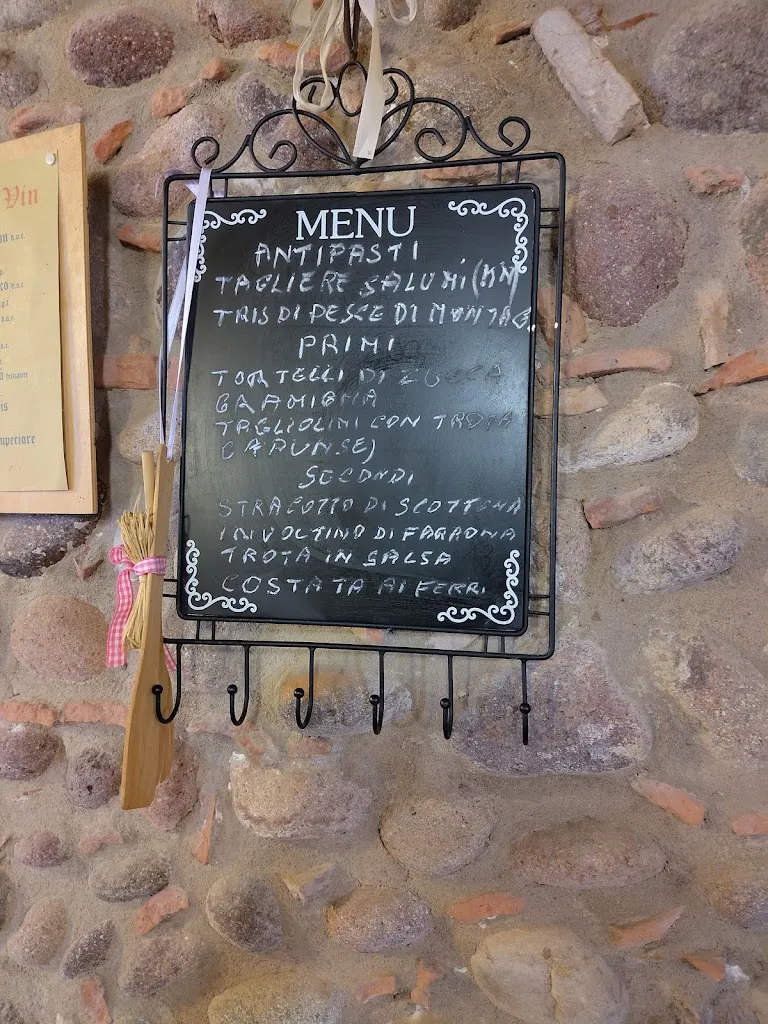 Vin
uperiore
MENU
ANTIPASTI
TAGLIERE SALUMI (MN)
TRIS DI PESCE DI MONTAG.
PRIMI
TORTELLI DI ZUCCA
GRAMIGNA
TAGLIOLINI CON TROTA
CAPUNSEI
SECONDI
STRACOTTO DI SCOTTONA
INVOLTINO DI FARAONA
TROTA IN SALSA
COSTATA AI FERRI